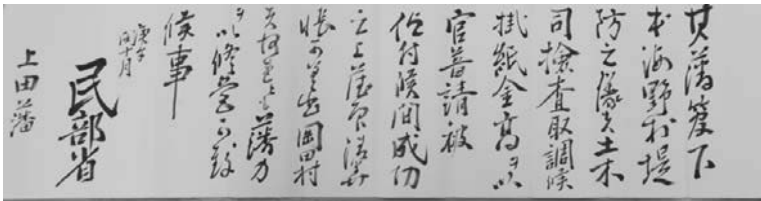 其藩管下
本海野村堤
防之儀ハ土木
司検査取調候
掛紙金高ヲ以
官普請被
仰付候間成功
之上
帳可差出田村
藩力
ヲ以修営可致
候事
庚午
閏十月
民部省
上田藩